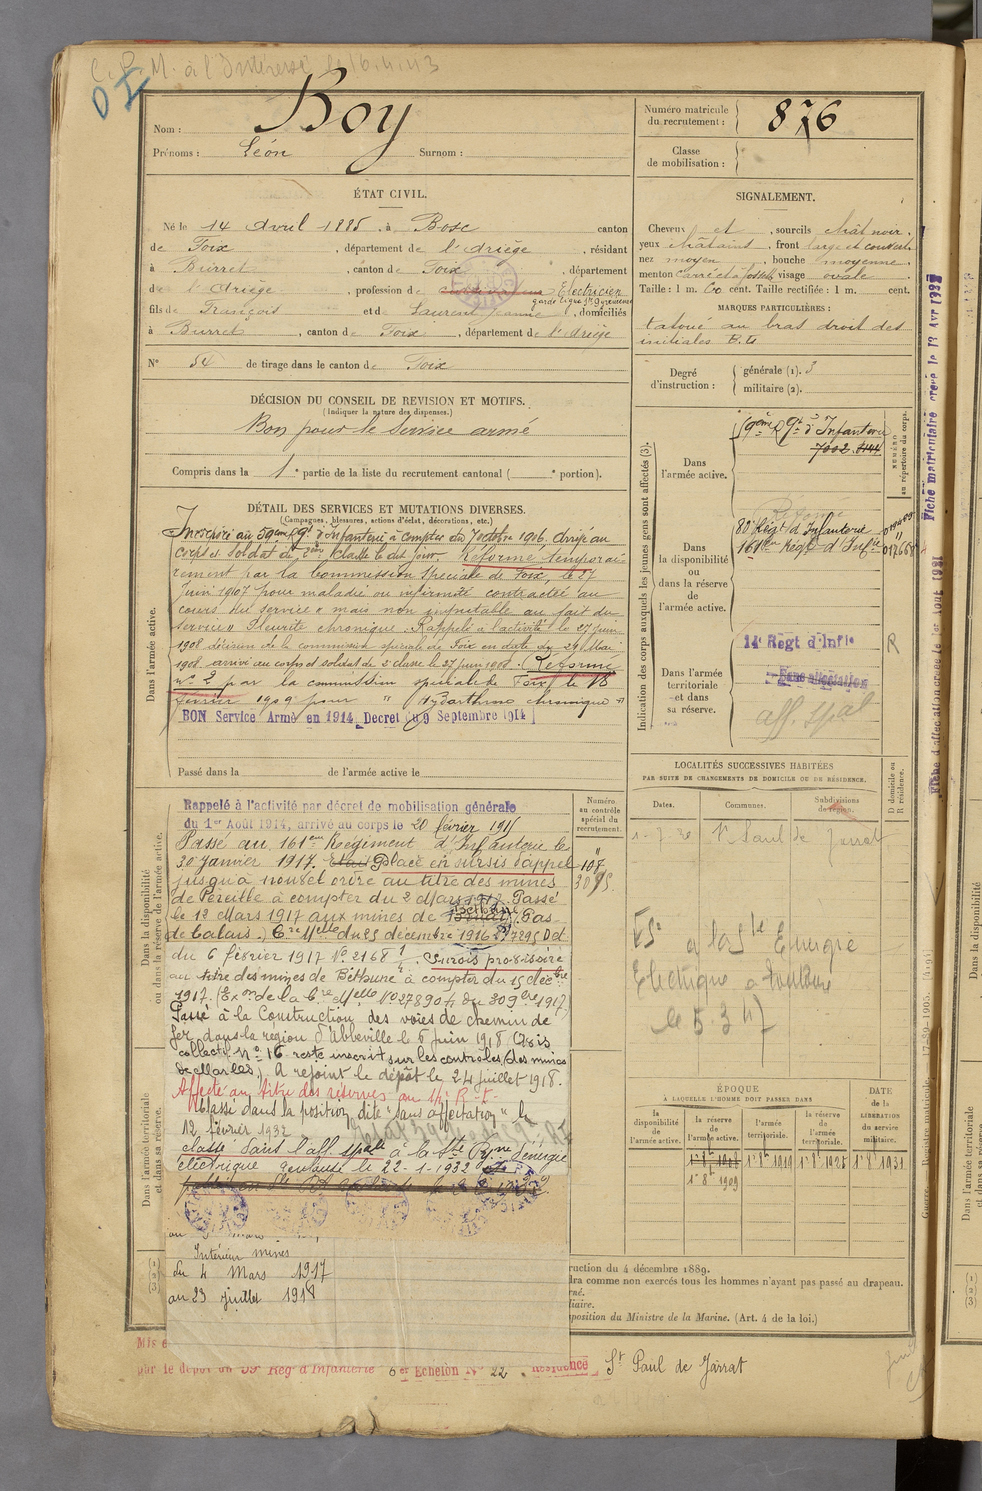 C. P. M. à l'Intéressé le 16.4.43
Nom : Boy
Prénoms : Léon Surnom :
Numéro matricule
du recrutement : 876
Classe
de mobilisation :
ÉTAT CIVIL.
Né le 14 Avril 1885, à Bosc canton
de Foix, département de l'Ariège, résidant
à Burret, canton de Foix, département
de l'Ariège, profession de Electricien
garde ligne
fils de François et de Laurent Jeanne, domiciliés
à Burret, canton de Foix, département de l'Ariège
N° 54 de tirage dans le canton de Foix
SIGNALEMENT.
Cheveux et, sourcils chât noir,
yeux châtains, front large et couvert
nez moyen, bouche moyenne,
menton carré et à fossette visage ovale
Taille : 1 m. 60 cent. Taille rectifiée : 1 m. cent.
MARQUES PARTICULIÈRES :
tatoué au bras droit des
initiales
Degré
d'instruction :
générale (1). 3
militaire (2).
DÉCISION DU CONSEIL DE REVISION ET MOTIFS.
(Indiquer la nature des dispenses.)
Bon pour le service armé
Compris dans la 1e partie de la liste du recrutement cantonal ( e portion).
DÉTAIL DES SERVICES ET MUTATIONS DIVERSES.
(Campagnes, blessures, actions d'éclat, décorations, etc.)
Dans l'armée active.
Incorporé au 59ème Rgt d'Infanterie à compter du 7 octobre 1906. Arrivé au
corps et soldat de 2ème classe le dit jour. Réformé temporai-
rement par la Commission spéciale de Foix, le 27
Juin 1907 pour maladie ou infirmité contractée au
cours du service « mais non imputable au fait du
service » Pleurite chronique. Rappelé à l'activité le 27 juin
1908 décision de la commission spéciale de Foix en date du 29 Mai
1908 arrivé au corps et soldat de 2e classe le 27 juin 1908. Réformé
n° 2 par la commission spéciale de Foix le 18
février 1909 pour " Hydarthrose chronique "
BON Service Armé en 1914, Decret du 9 Septembre 1914
Passé dans la de l'armée active le
Indication des corps auxquels les jeunes gens sont affectés (3).
NUMÉRO
au répertoire du corps.
Dans
l'armée active.
59ème Rgt d'Infanterie
7002
Dans
la disponibilité
ou dans la
réserve de
l'armée active.
Réformé
80e Régt d'Infanterie
161ème Régt d'Infie 012668
Dans l'armée
territoriale
et dans
sa réserve.
14e Régt d'Infie R
Sans affectation
aff. spal
Dans la disponibilité
ou dans la réserve de l'armée active.
Numéro
au contrôle
spécial du
recrutement.
Rappelé à l'activité par décret de mobilisation générale
du 1er Août 1914, arrivé au corps le 20 février 1915
Passé au 161ème Régiment d'Infanterie le
30 janvier 1917. Placé en sursis d'appel
jusqu'à nouvel ordre au titre des mines
de Péreille à compter du 2 Mars 1917. Passé
le 12 Mars 1917 aux mines de Béthune (Pas-
de Calais.) Cre Melle du 25 décembre 1916 n° 7295 D et
du 6 février 1917 N° 2168. Sursis provisoire
au titre des mines de Béthune à compter du 15 décbre
1917. (Exon de la Cre Melle N° 27890 du 30 9bre 1917)
Passé à la Construction des voies de chemin de
fer dans la région d'Abbeville le 6 juin 1918 (Avis
collectif N° 16 reste inscrit sur les contrôles des mines
de Marles). A rejoint le dépôt le 24 juillet 1918.
Affecté au titre des réserves au 14e R.I.
Classé dans la position dite "sans affectation" le
12 février 1932
classé dans l'aff. spale à la Sté Pyne d'energie
électrique Toulouse le 22-1-1932
Intérieur mines
du 4 Mars 1917
au 23 juillet 1918
Dans l'armée territoriale
et dans sa réserve.
LOCALITÉS SUCCESSIVES HABITÉES
PAR SUITE DE CHANGEMENTS DE DOMICILE OU DE RÉSIDENCE.
Dates. Communes. Subdivisions
de région.
D domicile ou
R résidence.
1-7-20 St Paul de Jarrat
à la Sté Energie
Electrique à Toulouse
le 5.3.47
ÉPOQUE
À LAQUELLE L'HOMME DOIT PASSER DANS
la
disponibilité
de
l'armée active.
la réserve
de
l'armée active.
l'armée
territoriale.
la réserve
de
l'armée
territoriale.
DATE
de la
LIBÉRATION
du
service
militaire.
1er 8bre 1908 1er 8bre 1919 1er 8bre 1925 1er 8bre 1931
1er 8bre 1909
ruction du 4 décembre 1889.
dra comme non exercés tous les hommes n'ayant pas passé au drapeau.
position du Ministre de la Marine. (Art. 4 de la loi.)
par le dépôt du 59e Rég d'Infanterie 6er Echelon N° 22 Résidence St Paul de Jarrat
Fiche matriculaire créée le 13 Avr 1932
Fiche d'affectation créée le 1er Août 1931